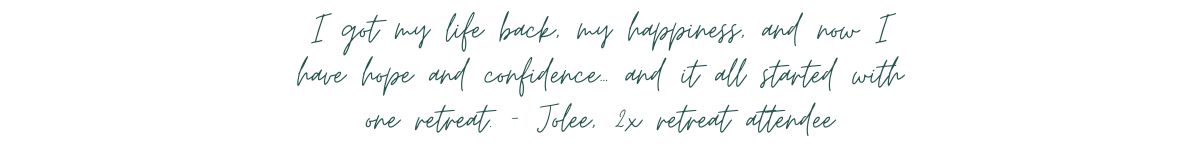 I got my life back, my happiness, and now I
have hope and confidence... and it all started with
one retreat. - Jolee, 2x retreat attendee